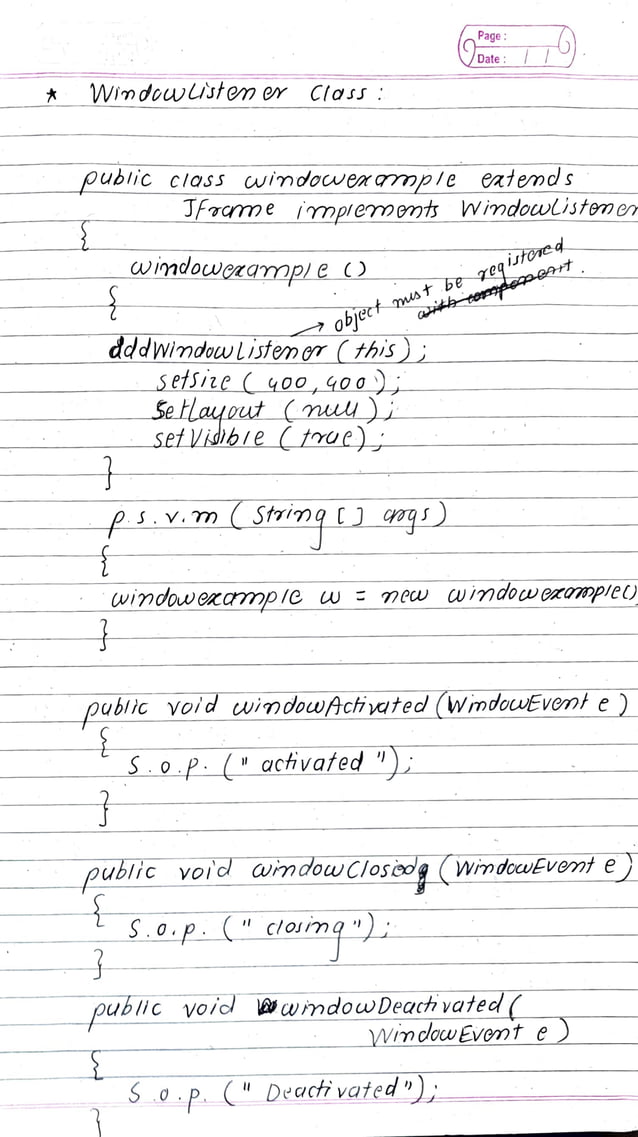 Page :
Date : / /
* WindowListener Class :
public class windowexample extends
JFrame implements WindowListener
{
windowexample ()
{
→ object must be registered
with component.
addWindowListener (this);
setsize ( 400, 400 );
SetLayout (null);
setVisible ( true);
}
p.s.v.m ( String [ ] args)
{
windowexample w = new windowexample()
}
public void windowActivated (WindowEvent e )
{
S.o.p. (" activated ");
}
public void windowClosing (WindowEvent e )
{
S.o.p. (" closing");
}
public void windowDeactivated (
WindowEvent e )
{
S.o.p. (" Deactivated");
}